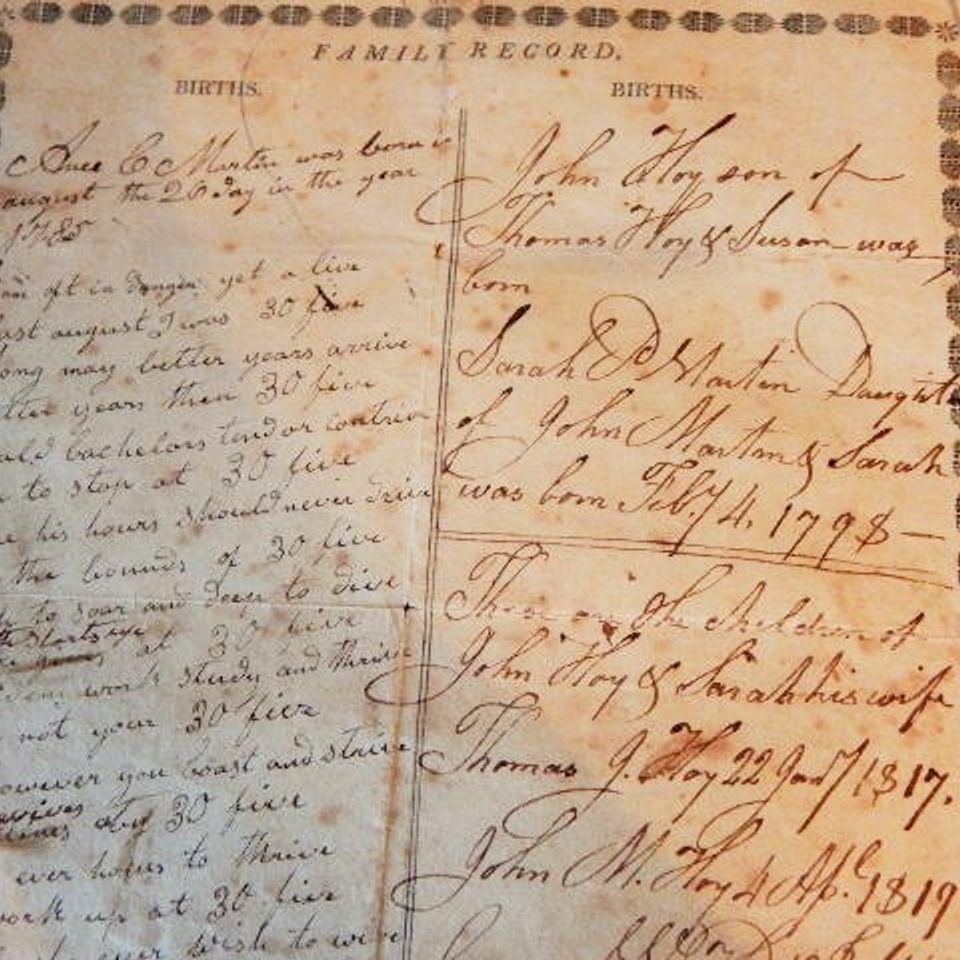 FAMILY RECORD.
BIRTHS.
C Martin was born
august the 20 day in the year
1785
oft in danger yet a live
last august I was 30 five
long may better years arrive
years then 30 five
bachelors
to stop at 30 five
his hours should never drive
the bounds of 30 five
to soar and deep to dive
at 30 five
work study and thrive
not your 30 five
however you boast and strive
30 five
ever hours to thrive
work up at 30 five
ever wish to wive
BIRTHS.
John Hoy son of
Thomas Hoy & Susan was
born
Sarah P Martin Daught
of John Martin & Sarah
was born Feby 4, 1798
These are the children of
John Hoy & Sarah his wife
Thomas J. Hoy 22 Jany 1817.
John M. Hoy 4 Apl. 1819